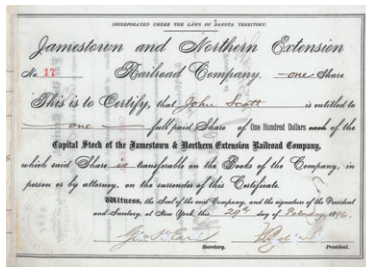 INCORPORATED UNDER THE LAWS OF DAKOTA TERRITORY.
Jamestown and Northern Extension
No. 17 Railroad Company. -one- Share
This is to Certify, that John Scott is entitled to
one full paid Share of One Hundred Dollars each of the
Capital Stock of the Jamestown & Northern Extension Railroad Company,
which said Share is transferable on the Books of the Company, in
person or by attorney, on the surrender of this Certificate.
Witness, the Seal of the said Company, and the signatures of the President
and Secretary, at New York this 29th day of February 1896.
Secretary. President.